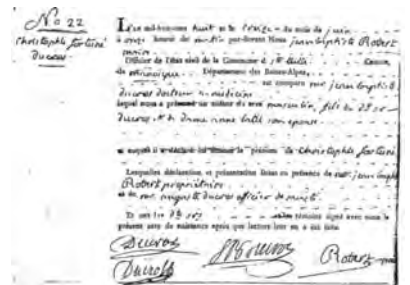 No 22
Christophe fortuné
Ducros
L'an mil-huit-cent huit et le treize du mois de juin
à onze heures du matin par-devant Nous jean baptiste Robert
maire
Officier de l'état civil de la Commune d Ste tulle Canton
de manosque Département des Basses-Alpes,
est comparu mr jean baptiste
ducros docteur en médecine
lequel nous a présenté un enfant du sexe masculin, fils de
ducros et de dame anne son épouse
et auquel il a déclaré donner le prénom de Christophe fortuné
Lesquelles déclaration et présentation faites en présence de mr jean
Robert propriétaire
et de mr auguste ducros officier de santé
Et ont les témoins signé avec nous le
présent acte de naissance après que lecture leur en a été faite
Ducros Robert
Ducros